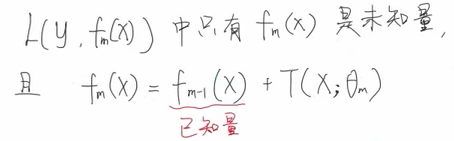 L(y, f_m(x)) 中只有 f_m(x) 是未知量,
且 f_m(x) = f_{m-1}(x) + T(x;θ_m)
已知量